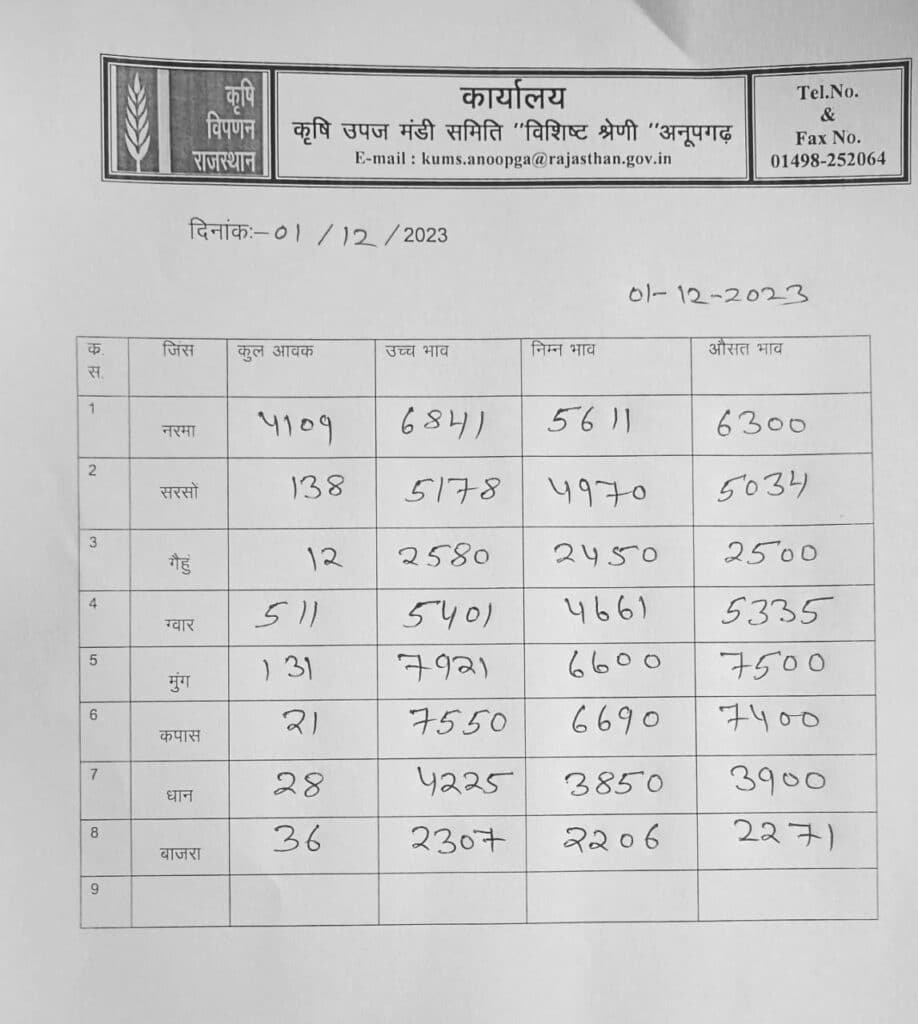 कृषि
विपणन
राजस्थान
कार्यालय
कृषि उपज मंडी समिति "विशिष्ट श्रेणी "अनूपगढ़
E-mail : kums.anoopga@rajasthan.gov.in
Tel.No.
&
Fax No.
01498-252064
दिनांकः-01/12/2023
01-12-2023
क. स. जिस कुल आवक उच्च भाव निम्न भाव औसत भाव
1 नरमा 4109 6841 5611 6300
2 सरसों 138 5178 4970 5034
3 गैहुं 12 2580 2450 2500
4 ग्वार 511 5401 4661 5335
5 मुंग 131 7921 6600 7500
6 कपास 21 7550 6690 7400
7 धान 28 4225 3850 3900
8 बाजरा 36 2307 2206 2271
9